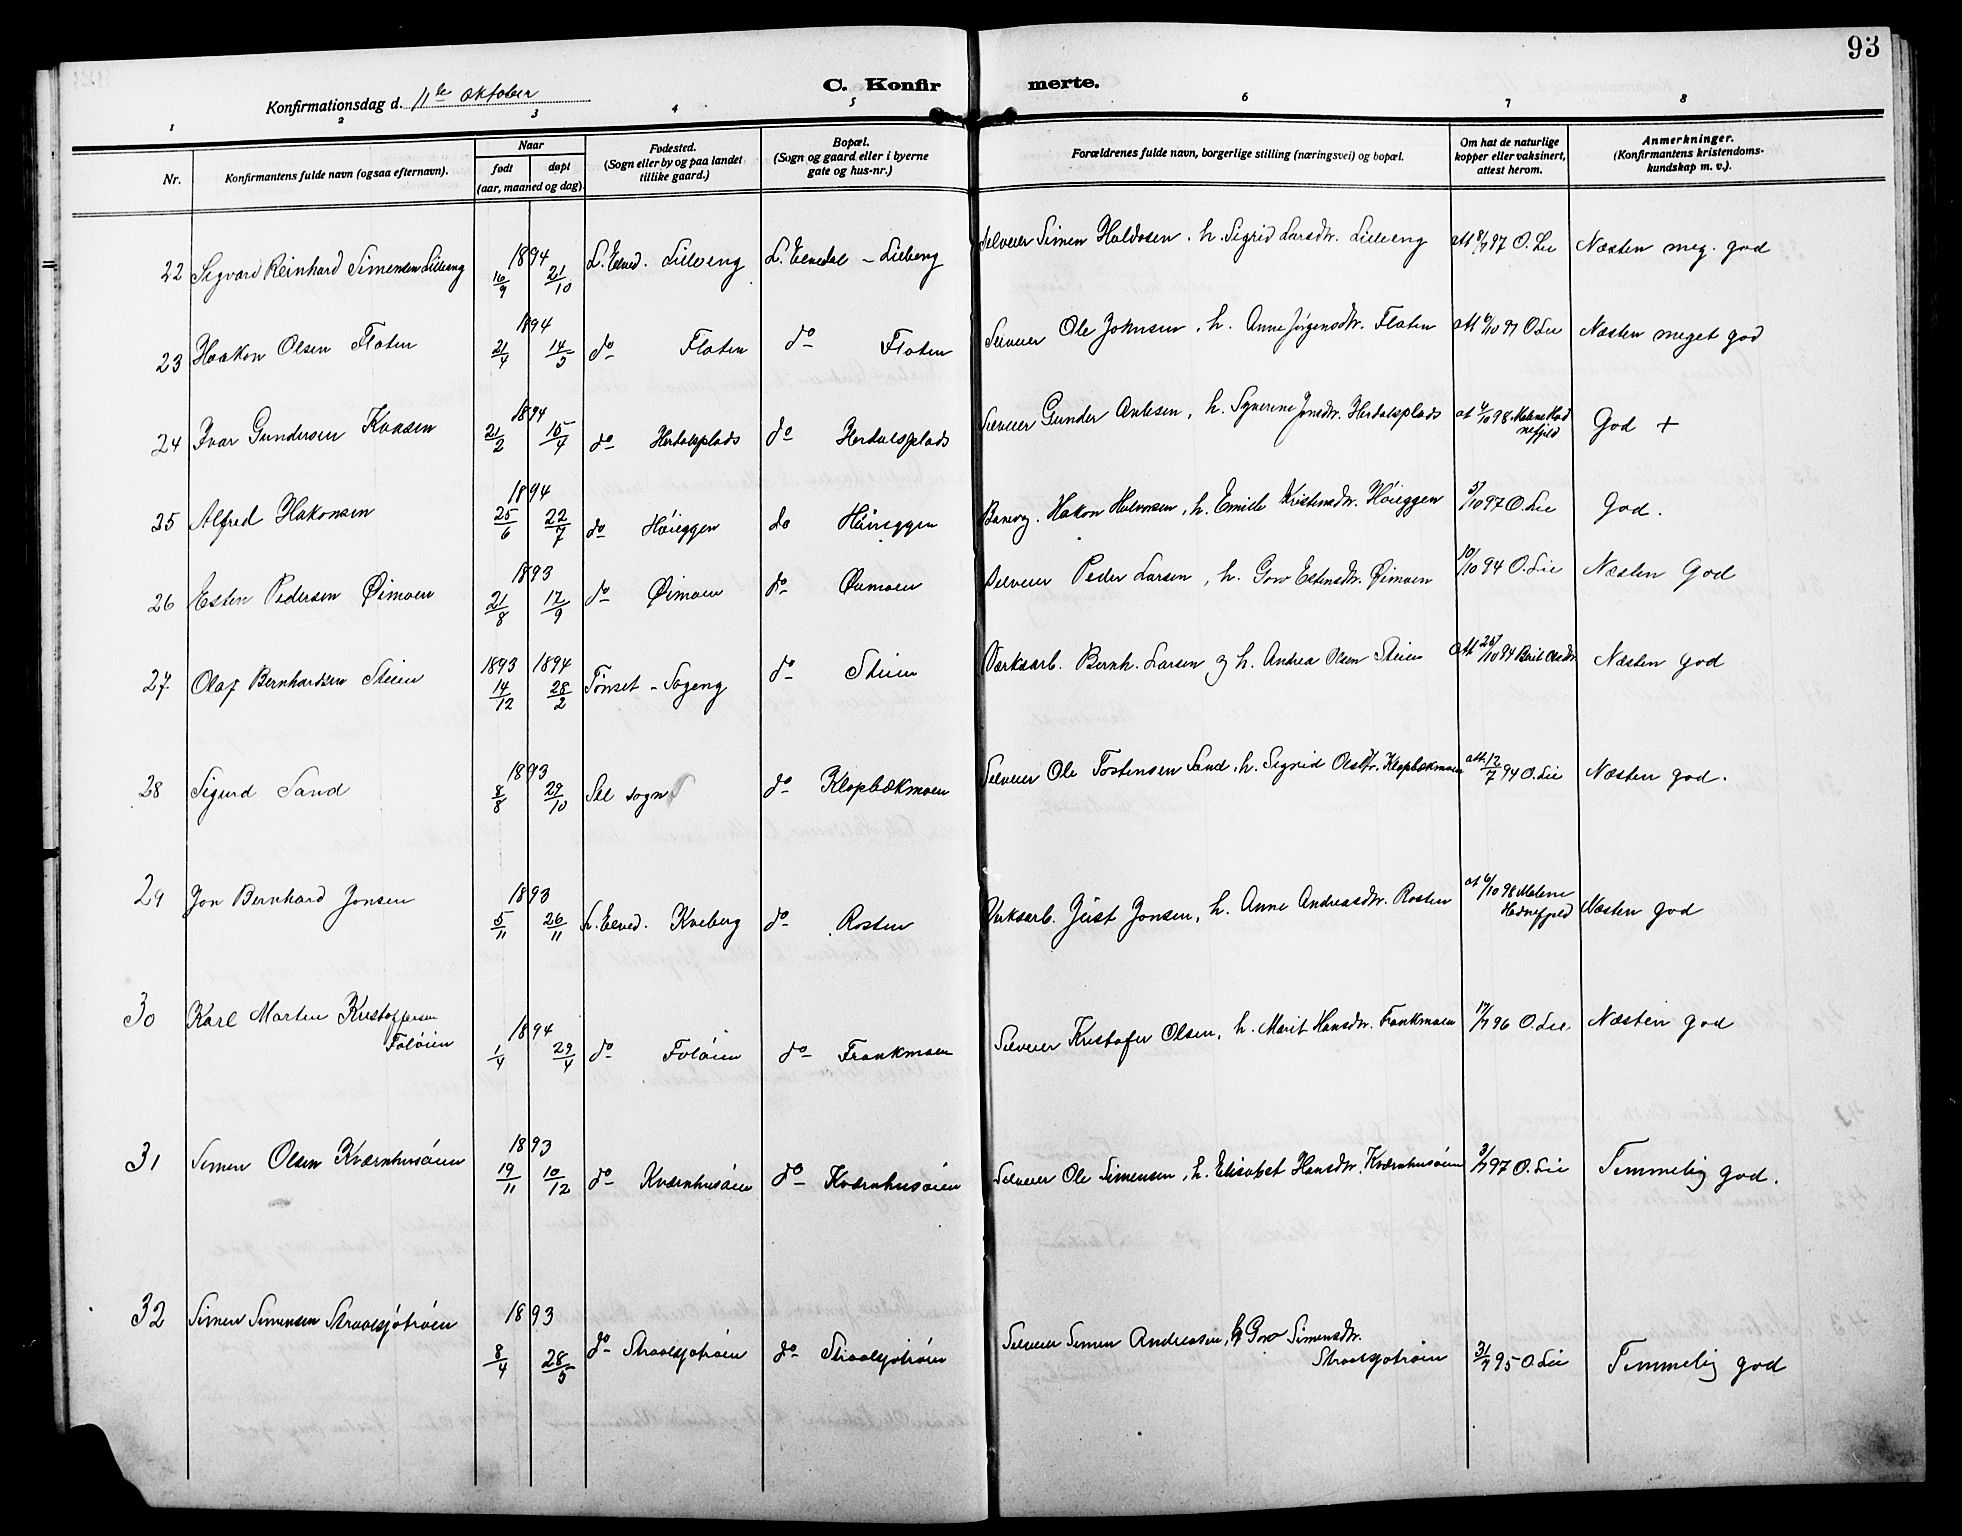 93
Konfirmationsdag d. 11te oktober
C. Konfirmerte.
1 2 3 4 5 6 7 8
Nr. Konfirmantens fulde navn (ogsaa efternavn). Naar født døpt (aar, maaned og dag). Fødested. (Sogn eller by og paa landet tillike gaard.) Bopæl. (Sogn og gaard eller i byerne gate og hus-nr.) Forældrenes fulde navn, borgerlige stilling (næringsvei) og bopæl. Om hat de naturlige kopper eller vaksinert, attest herom. Anmerkninger. (Konfirmantens kristendomskundskap m. v.).
22 Sigvard Reinhard Simensen Lilleeng 1894 16/9 21/10 L. Elved. Lilleeng L. Elvedal – Lilleeng Selveier Simen Haldosen, h. Sigrid Larsdtr. Lilleeng att 8/7 97 O. Lie Næsten meg. god
23 Haakon Olsen Floten 1894 21/4 14/5 do Floten do Floten Selveier Ole Johnsen, h. Anne Jørgensdtr. Floten att 6/10 97 O. Lie Næsten meget god
24 Ivar Gundersen Kvasen 1894 21/2 15/4 do Herdalsplads do Herdalsplads Selveier Gunder h. Synerine Jonsdtr. Herdalsplads at 4/10 98 Malene Hadnefjeld God +
25 Alfred Hakonsen 1894 25/6 22/7 do Høieggen do Høieggen Banevog. Hakon Halvorsen, h. Emilie Kristensdtr. Høieggen 5/10 97 O. Lie God.
26 Esten Pedersen Øimoen 1893 21/8 17/9 do Øimoen do Øimoen Selveier Peder Larsen, h. Goro Estensdtr. Øimoen 10/10 94 O. Lie Næsten God
27 Olaf Bernhardsen Steien 1893 14/12 1894 28/2 Tønset – Sogeng do Steien Værksarb. Bernh. Larsen og h. Andrea Olsen Steien Att 25/10 94 Berit Olsdtr Næsten god
28 Sigurd Sand 1893 8/8 29/10 Sel sogn do Klopbækmoen Selveier Ole Tostensen Sand, h. Sigrid Olsdtr. Klopbækmoen att. 12/7 94 O. Lie Næsten god.
29 Jon Bernhard Jonsen 1893 5/11 26/11 L. Elved. Kveberg do Rosten Verksarb. Jens Jonsen, h. Anne Andreasdtr. Rosten at 6/10 98 Malene Hadnefjeld Næsten god
30 Karl Martin Kristoffersen Foløien 1894 1/4 29/4 do Foløien do Frankmoen Selveier Kristofer Olsen, h. Marit Hansdtr. Frankmoen 17/7 96 O. Lie Næsten god
31 Simen Olsen Kværnhusøien 1893 19/11 10/12 do Kværnhusøien do Kværnhusøien Selveier Ole Simensen, h. Elisabet Hansdtr. Kværnhusøien 3/7 97 O. Lie Temmelig god.
32 Simen Simensen Straalsjøtrøen 1893 8/4 28/5 do Straalsjøtrøen do Straalsjøtrøen Selveier Simen Andreasen, h. Goro Simensdtr. Straalsjøtrøen 31/7 95 O. Lie Temmelig god